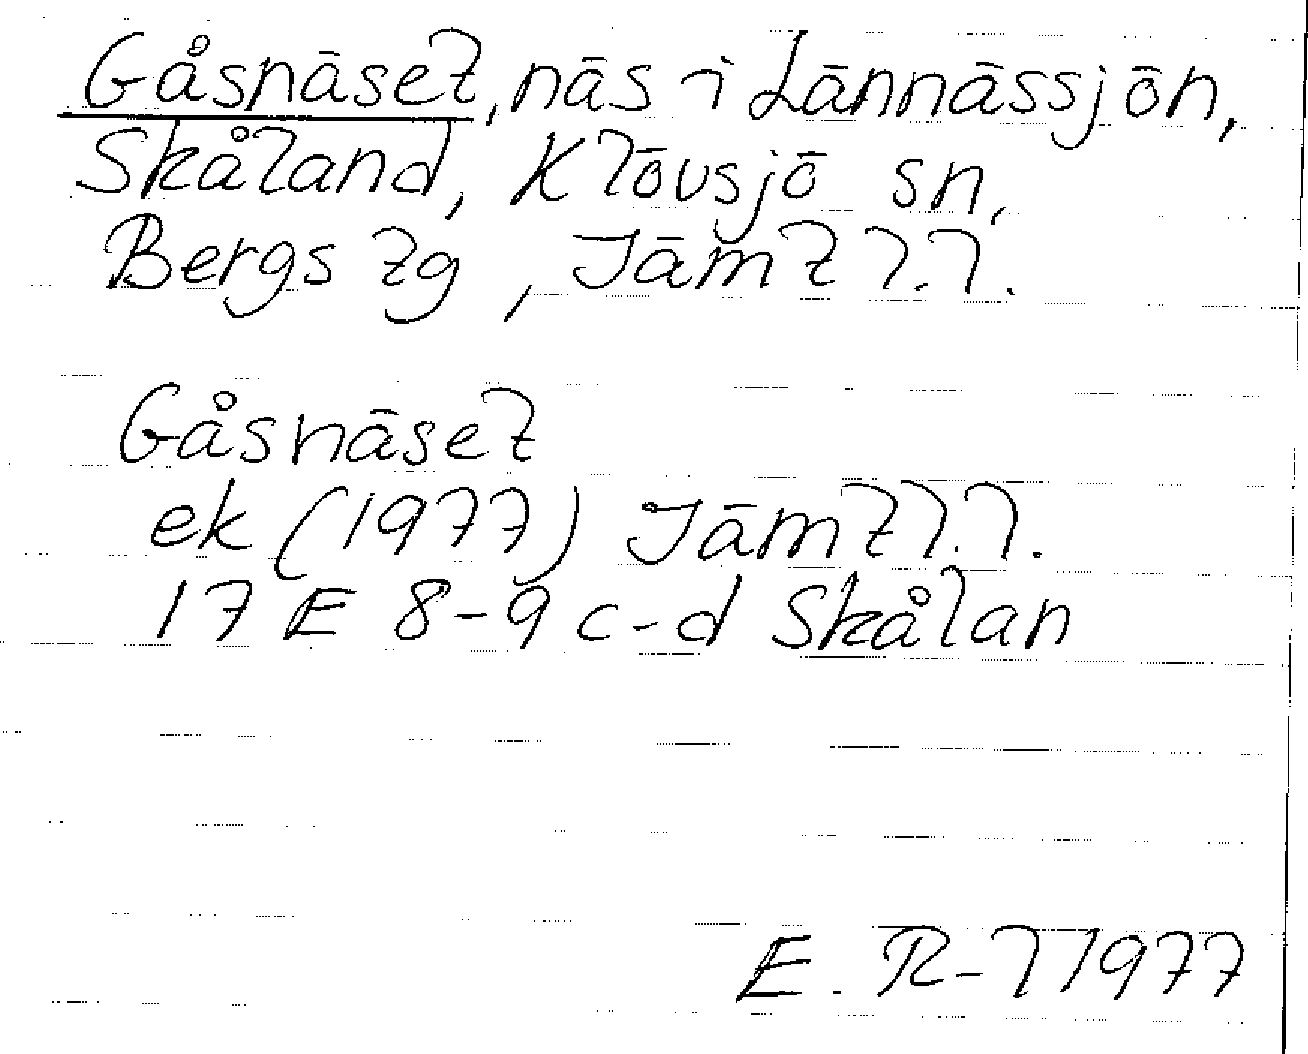 Gåsnäset, näs i Lännässjön,
Skåland, Klövsjö sn,
Bergs tg, Jämtl.l.
Gåsnäset
ek (1977) Jämtl.l.
17 E 8-9 c-d Skålan
E. R-l 1977